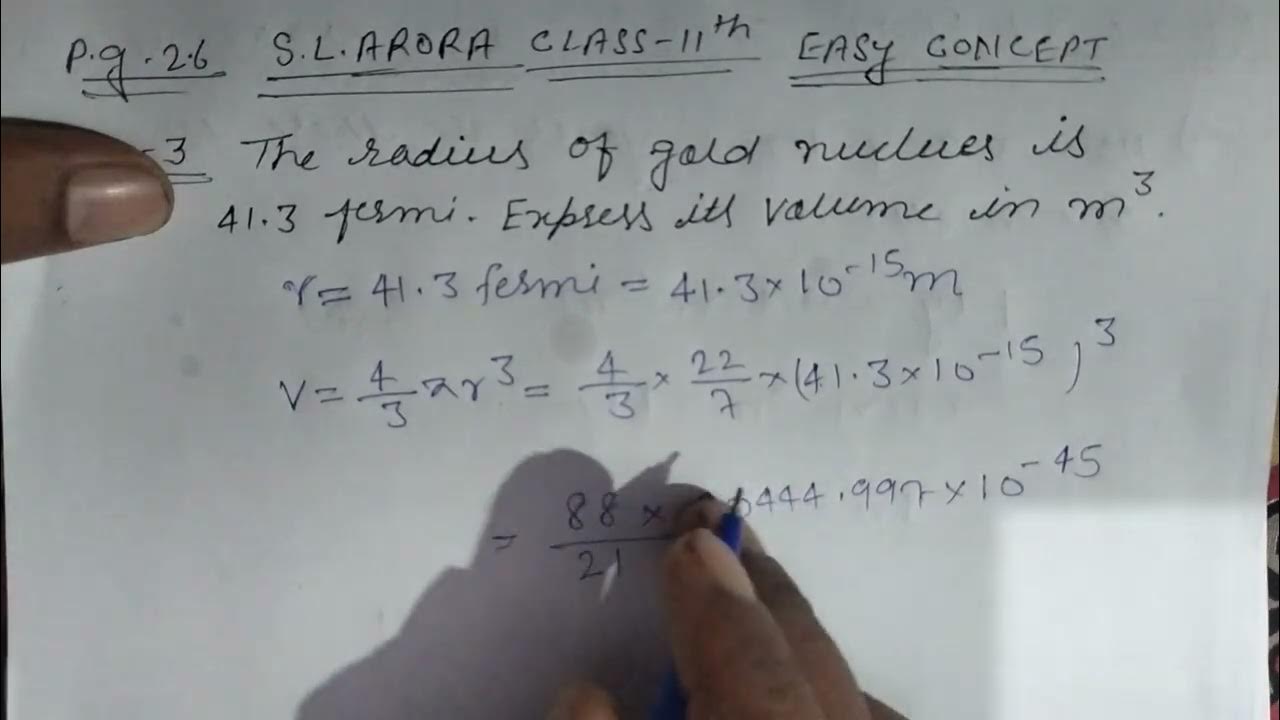 P.g. 2.6 S.L. ARORA CLASS-11th EASY CONCEPT
-3 The radius of gold nucleus is
41.3 fermi. Express its volume in m³.
r = 41.3 fermi = 41.3 × 10⁻¹⁵ m
V = 4/3 πr³ = 4/3 × 22/7 × (41.3 × 10⁻¹⁵)³
= 88/21 × 444.997 × 10⁻⁴⁵